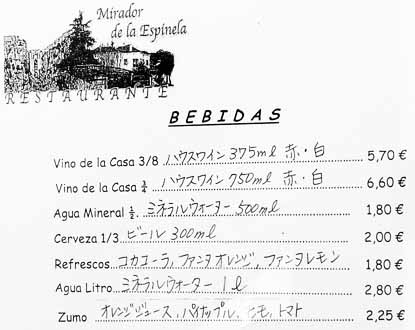 Mirador
de la Espinela
RESTAURANTE
BEBIDAS
Vino de la Casa 3/8 ハウスワイン 375ml 赤・白 5,70 €
Vino de la Casa ¾ ハウスワイン 750ml 赤・白 6,60 €
Agua Mineral ½ ミネラルウォーター 500ml 1,80 €
Cerveza 1/3 ビール 300ml 2,00 €
Refrescos コカコーラ, ファンタオレンジ, ファンタレモン 1,80 €
Agua Litro ミネラルウォーター 1l 2,80 €
Zumo オレンジジュース, パイナップル, モモ, トマト 2,25 €